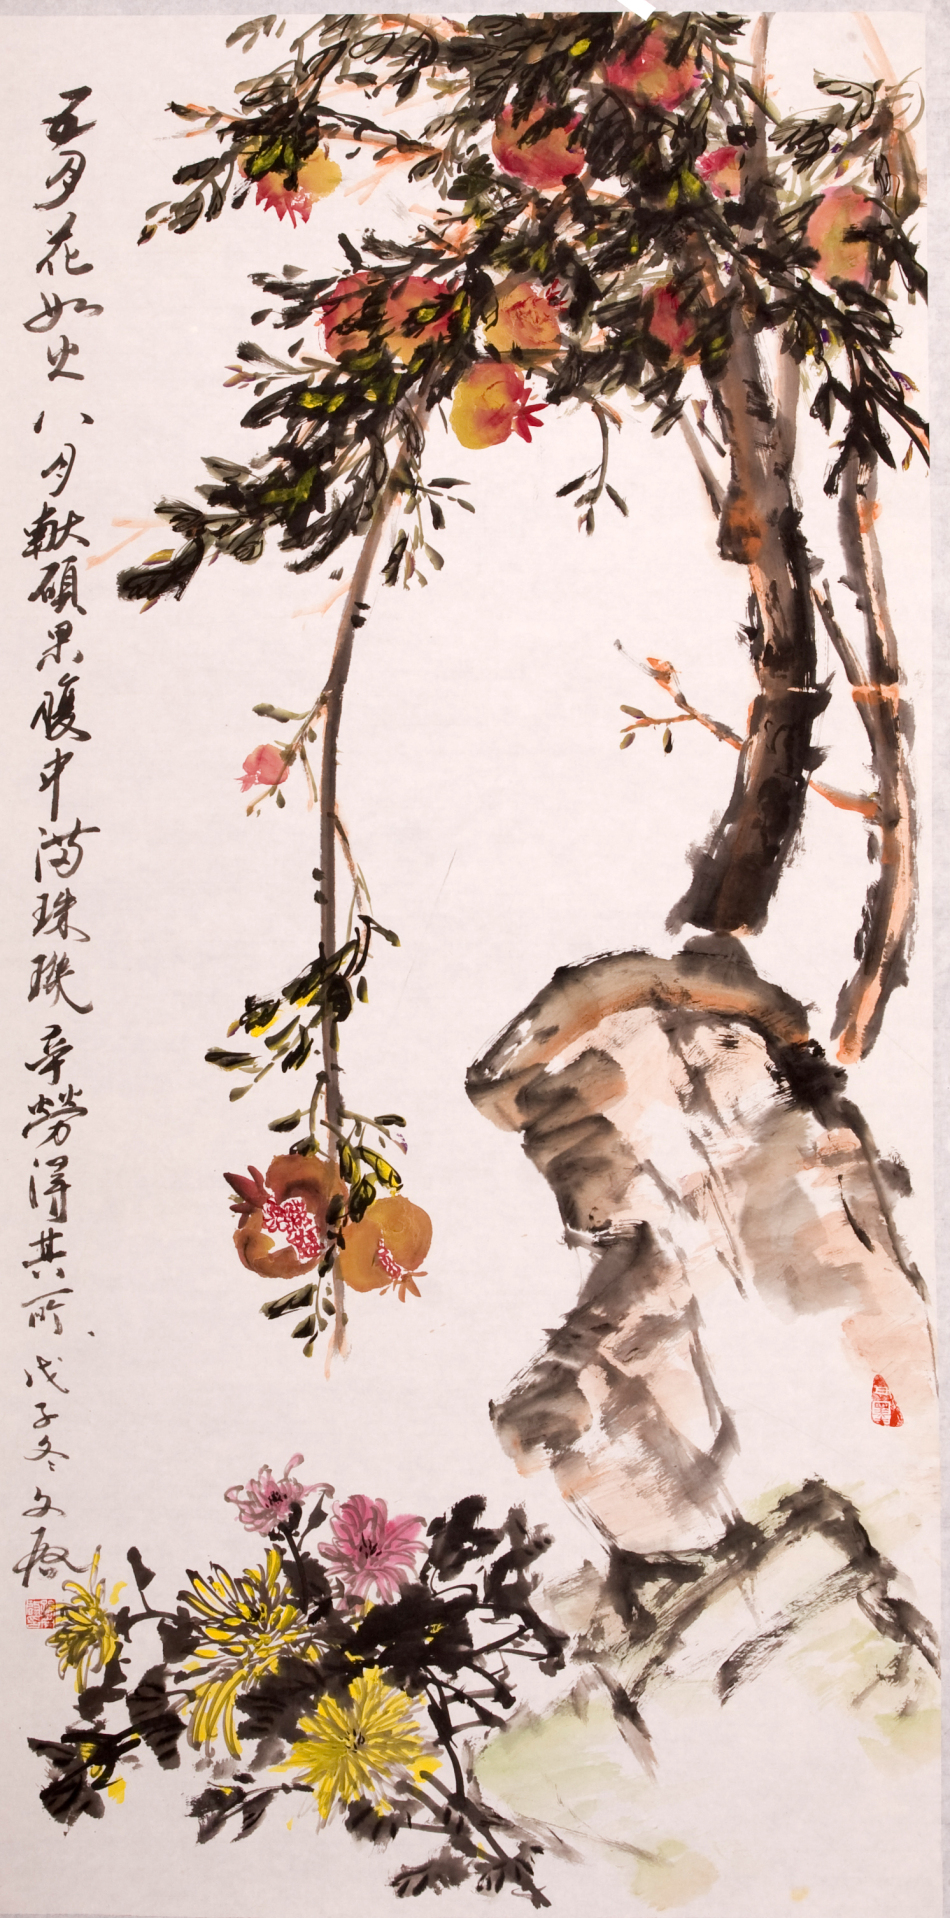 五月花如火八月献硕果腹中满珠璣辛勞得其所戊子冬文啟